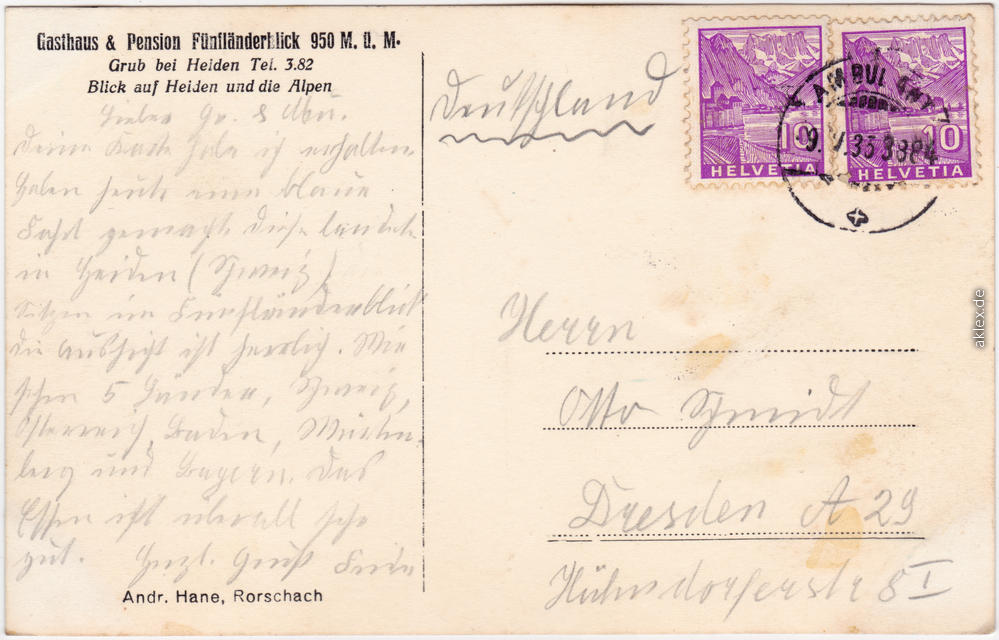 Gasthaus & Pension Fünfländerblick 950 M. ü. M.
Grub bei Heiden Tel. 3.82
Blick auf Heiden und die Alpen
Lieber
Deine Karte habe ich erhalten.
Haben heute eine blaue
Fahrt gemacht diese landete
in Heiden (Schweiz)
Sitzen im Fünfländerblick
die Aussicht ist herrlich. Wir
sehen 5 Länder, Schweiz,
Österreich, Baden, Württem-
berg und Bayern. Das
Essen ist überall sehr
gut. Herzl. Gruß
Andr. Hane, Rorschach
Deutschland
10
HELVETIA
10
HELVETIA
AMBULANT
Herrn
Otto Schmidt
Dresden A 29
Hühndorferstr 8 I
aklex.de